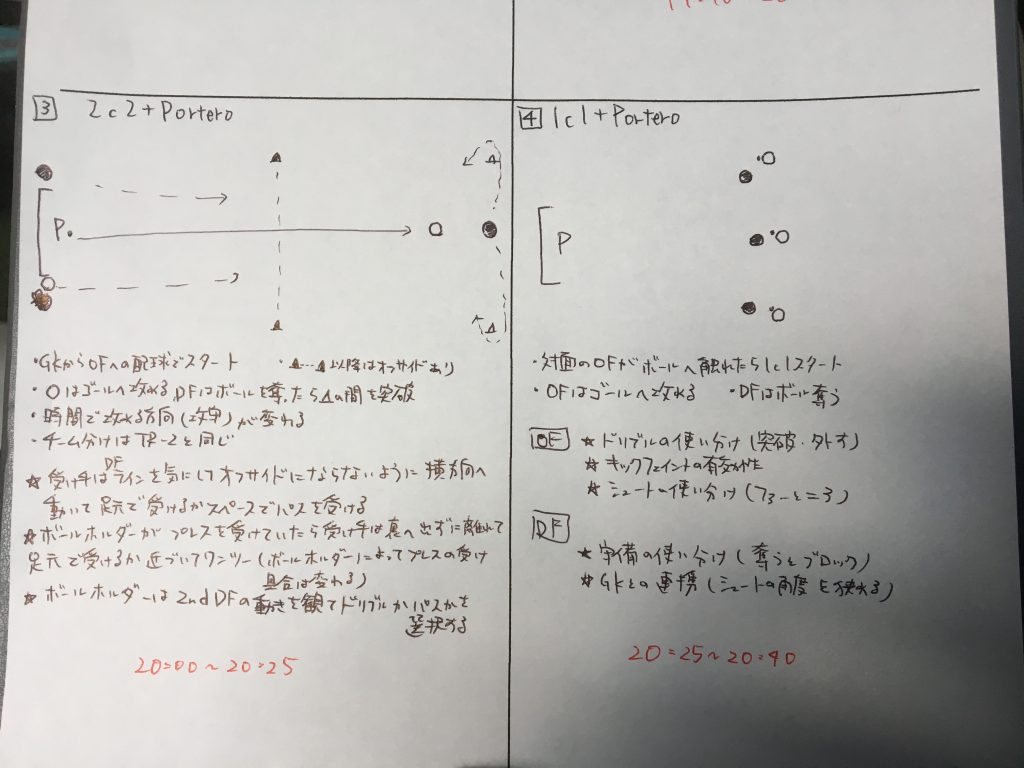 3 2c2+Portero
P
・GKからOFへの配球でスタート ・▲---▲以降はオフサイドあり
・○はゴールへ攻める,DFはボールを奪ったら△の間を突破
・時間で攻める方向(攻守)が変わる
・チーム分けはTR-2と同じ
★受け手はDFラインを気にしてオフサイドにならないように横方向へ
動いて足元で受けるかスペースでパスを受ける
★ボールホルダーがプレスを受けていたら受け手は裏へ出ずに離れて
足元で受けるか近づいてワンツー(ボールホルダーによってプレスの受け
具合は変わる)
★ボールホルダーは2ndDFの動きを観てドリブルかパスかを
選択する
20:00~20:25
4 1c1+Portero
P
・対面のOFがボールへ触れたら1c1スタート
・OFはゴールへ攻める ・DFはボール奪う
OF ★ドリブルの使い分け(突破・外す)
★キックフェイントの有効
★シュートの使い分け
DF
★守備の使い分け(奪うとブロック)
★GKとの連携(シュートの角度を狭める)
20:25~20:40